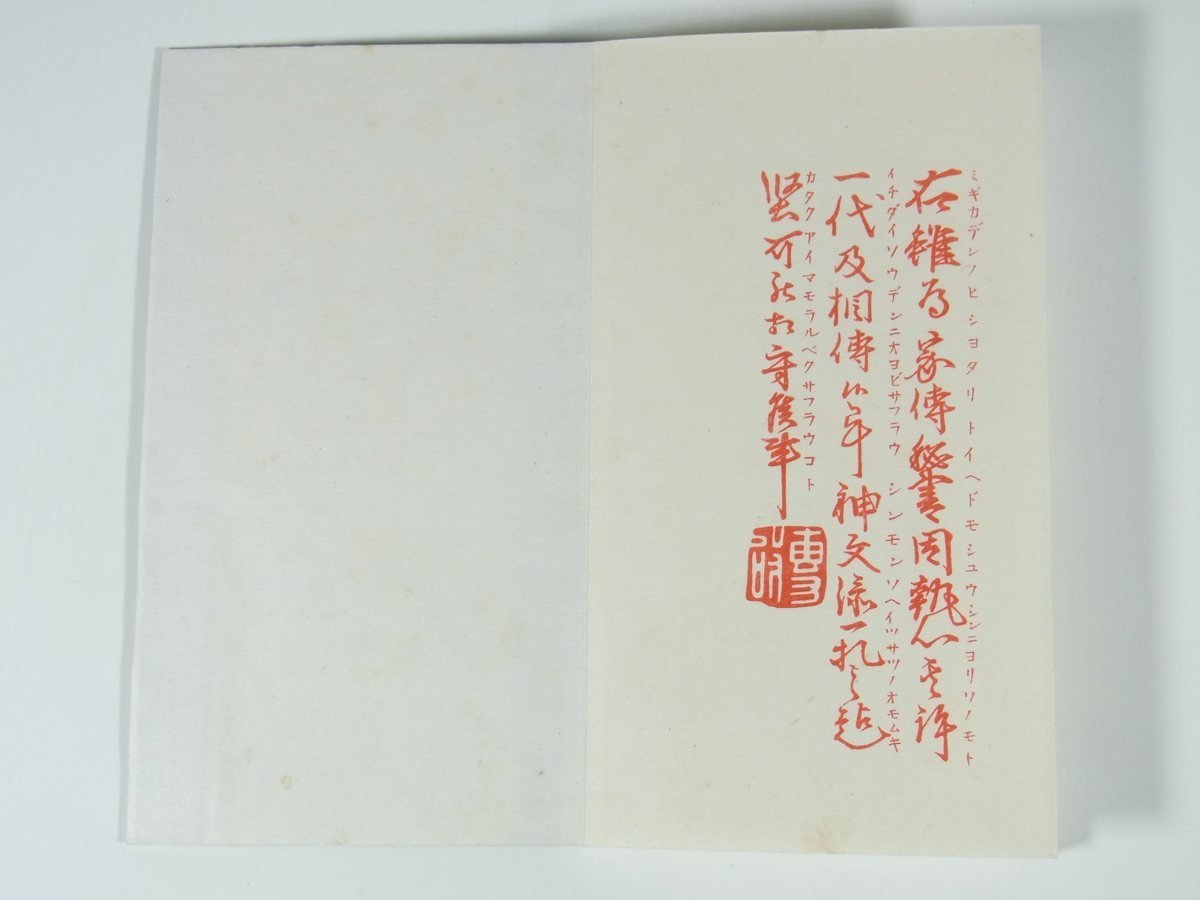 ミギカデンノヒシヨタリトイヘドモシユウシンニヨリソノモト
右雖為家傳秘書因執心其許
イチダイソウデンニオヨビサフラウ シンモンソヘイツサツノオモムキ
一代及相傳候 神文添一札之趣
カタクアイマモラルベクサフラウコト
堅可被相守候事